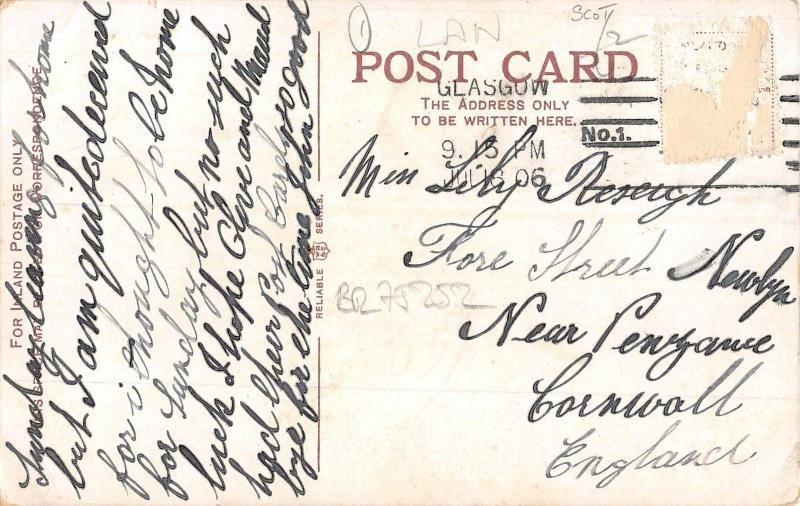 ① LAN
SCOT
1/2
POST CARD
THE ADDRESS ONLY
TO BE WRITTEN HERE.
GLASGOW
9.15 PM
JUL 13 06
NO.1.
FOR INLAND POSTAGE ONLY
CORRESPONDENCE
RELIABLE WR&S SERIES.
BR75252
Miss Lily
Fore Street Newlyn
Near Penzance
Cornwall
England
home
but I am quite deceived
for i thought to be home
for Sunday but no such
luck I hope Olive and Maud
had their so good
bye for the time John